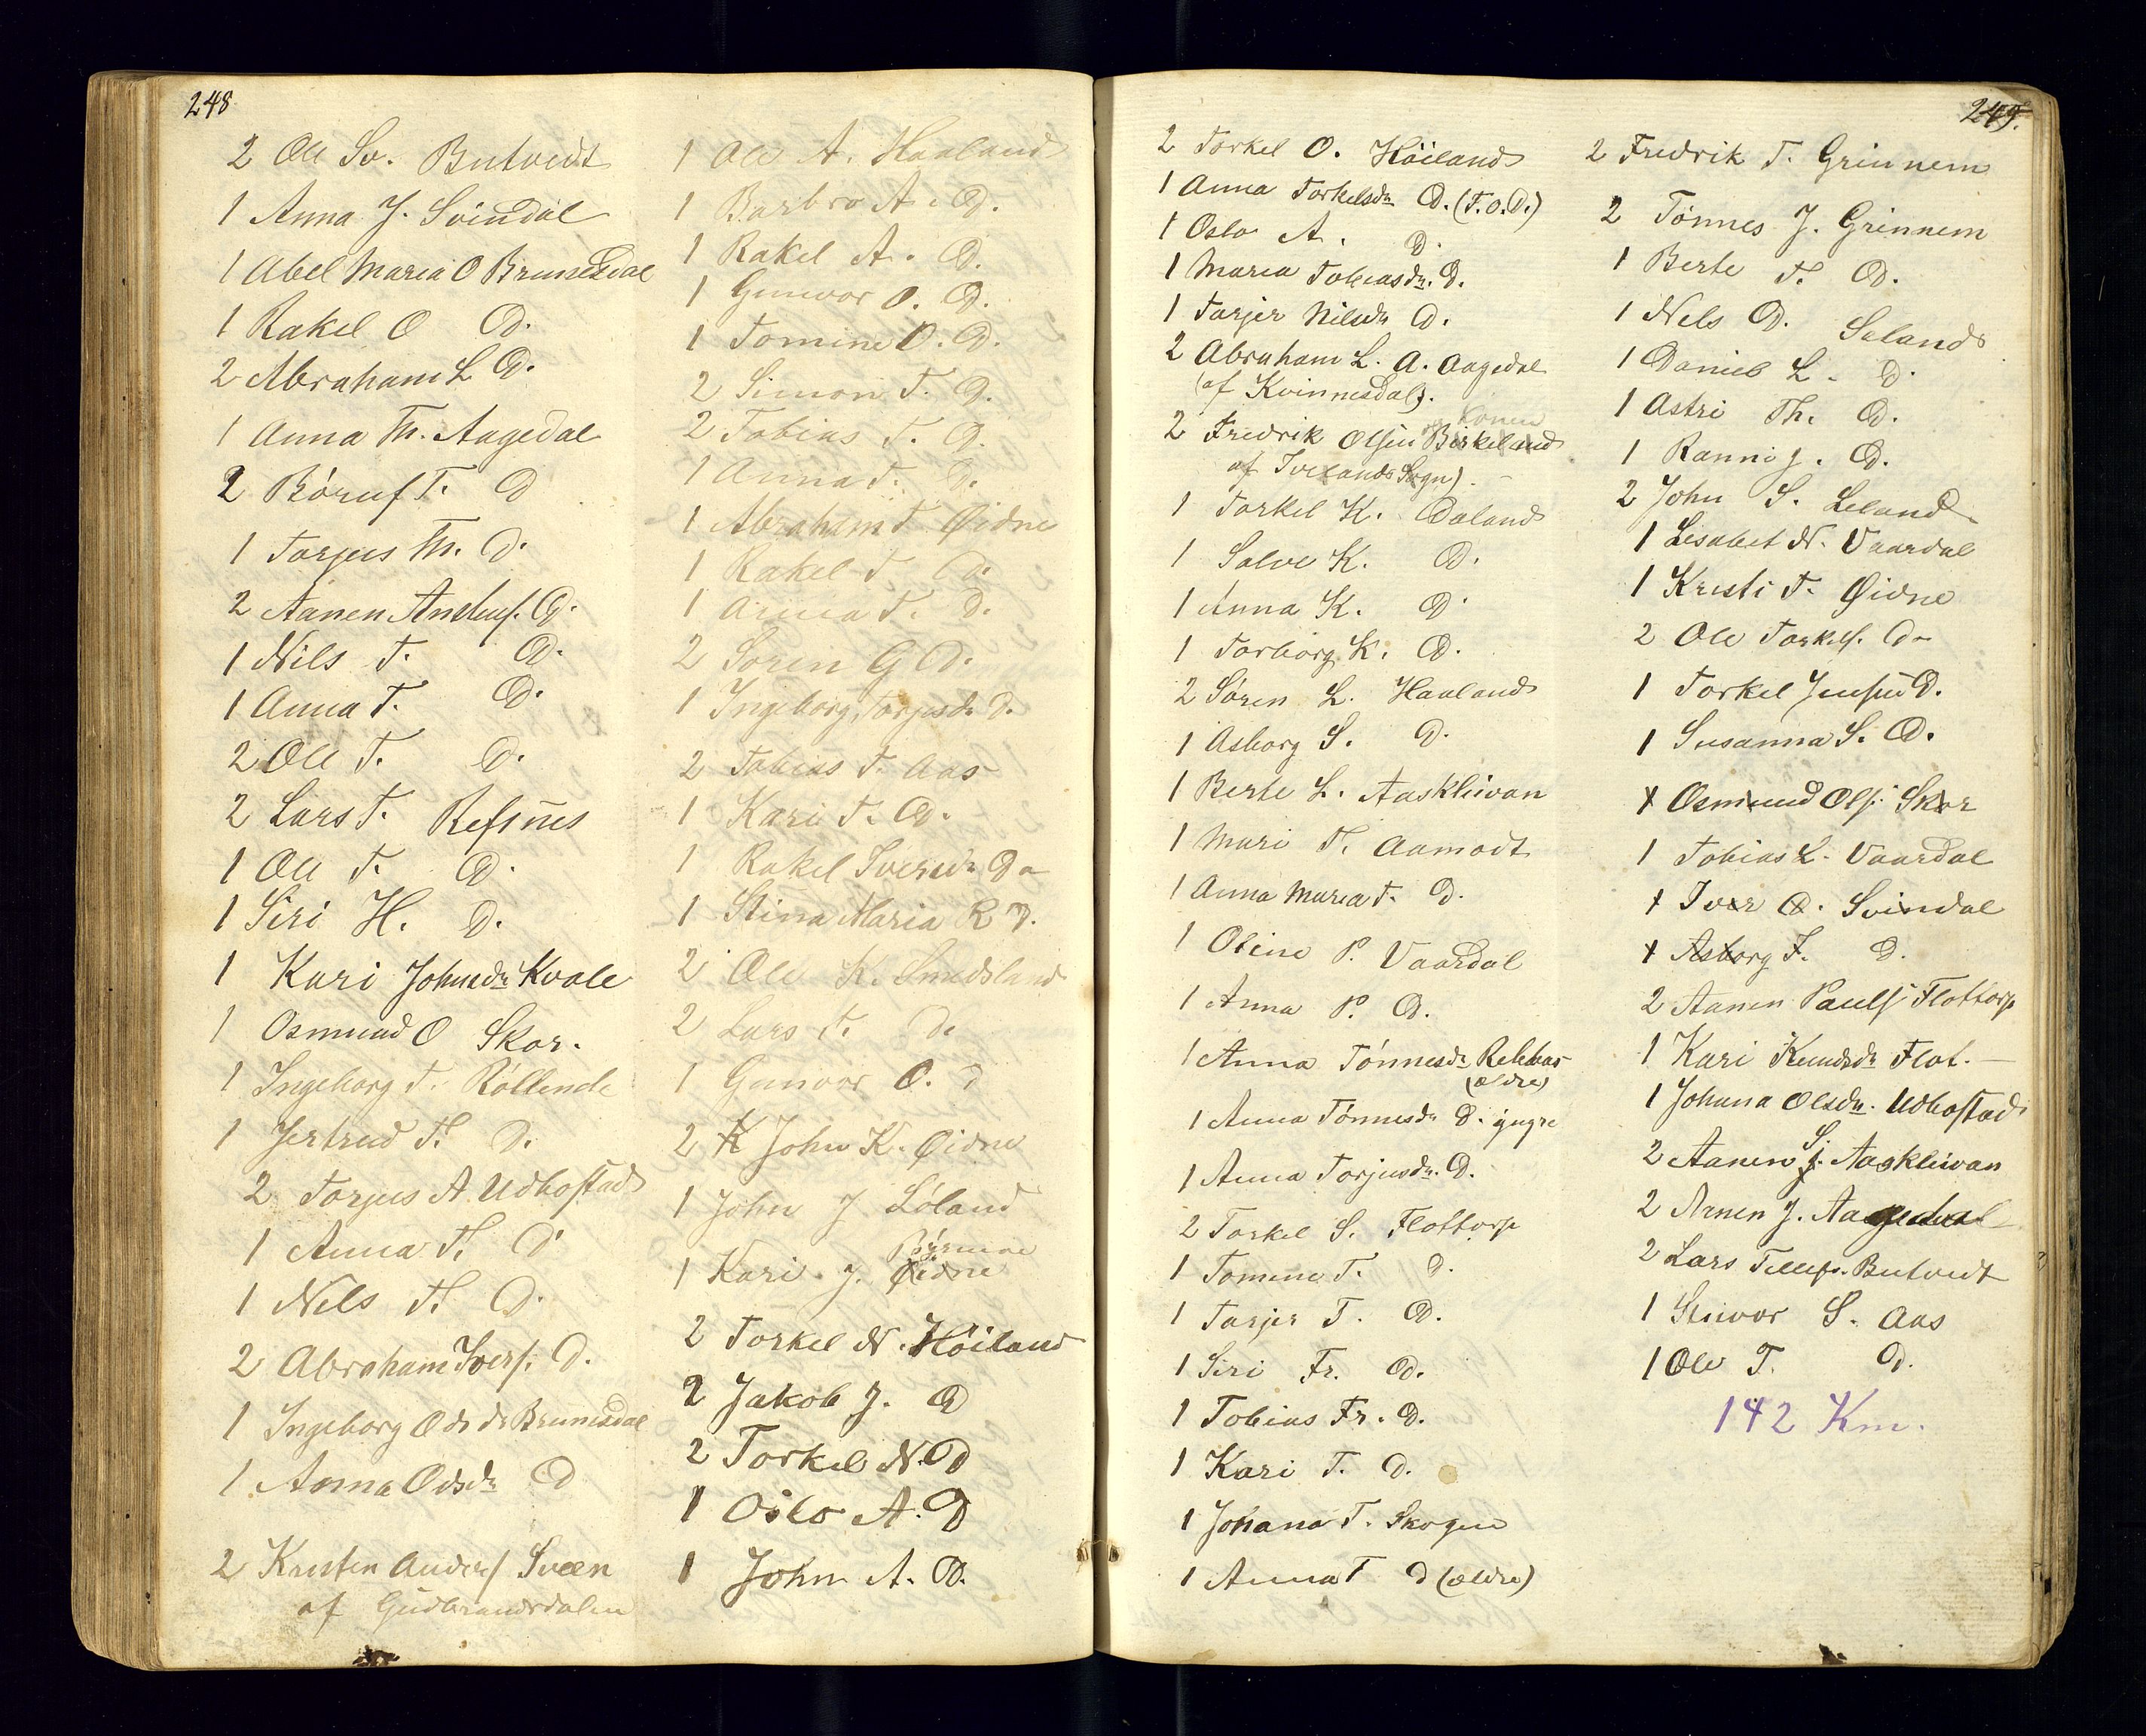 248
2 Ole Sv. Butvedt
1 Anna J. Svindal
1 Abel Maria O Brunesdal
1 Rakel O D.
2 Abraham L D.
1 Anna Th. Aagedal
2 Böruf T. D
1 Torjus Th. D.
2 Aanen Anders. D.
1 Nils T. D.
1 Anna T. D.
2 Ole T. D.
2 Lars T. Refsnes
1 Ole T. D.
1 Siri H. D.
1 Kari Johnsdr Kvale
1 Osmund O Skor.
1 Ingeborg T. Röllend
1 Jertrud T. D.
2 Torjus A. Udbostad
1 Anna T. D
1 Nels T. D.
2 Abraham Ivers. D.
1 Ingeborg Odsdr Brunesdal
1 Anna Odsdr D
2 Kristen Anders Sveen
af Gudbrandsdalen
1 Ole A. Haaland
1 Barbro A. D.
1 Rakel A. D.
1 Gunvor O. D.
1 Tomine O. D.
2 Simon T. D.
2 Tobias T. D.
1 Anna T. D.
1 Abraham T Øidne
1 Rakel T D.
1 Anna T. D.
2 Soren G D.
1 Ingeborg Torjusdr D.
2 Tobias T. Aas
1 Kari T. D.
1 Rakel Iversdr Do
1 Stina Maria R D.
2 Ole K. Smedsland
2 Lars T. D.
1 Gunvor O. D
2 K John K. Øidne
1 John J Löland
1 Kari J. Øidne
2 Torkel N. Höiland
2 Jakob J. D
2 Torkel N. D
1 Oslo A. D
1 John A. D.
249.
2 Torkel O. Höiland
1 Anna Torkelsdr D. (T.O.D.)
1 Oslo A. D.
1 Maria Tobiasdr. D.
1 Tarjer Nilsdr D.
2 Abraham L. A. Aagedal
(af Kvinnesdal).
2 Fredrik Olsen Birkeland
af Ivelands Sogn).
1 Torkel K. Daland
1 Salve K. D.
1 Anna K. D.
1 Torborg K. D.
2 Søren L. Haaland
1 Asborg S. D.
1 Berte L. Aasklivan
1 Mari T. Aamodt
1 Anna Maria T. D.
1 Oline P. Vaardal
1 Anna P. D.
1 Anna Tönnesdr
(ældre)
1 Anna Tönnesdr D. yngre
1 Anna Torjusdr. D.
2 Torkel S. Flottorp
1 Tomine T. D.
1 Tarjer T. D.
1 Siri Fr. D.
1 Tobias Fr. D.
1 Kari T. D.
1 Johana T. Skogen
1 Anna T D (ældre)
2 Fredrik T. Grinnem
2 Tönnes J. Grinnem
1 Berte T. D.
1 Nels D. Seland
1 Daniel L. D.
1 Astri Th. D.
1 Ranni J. D.
2 John S. Leland
1 Lisabet N. Vaardal
1 Kristi T. Øidne
2 Ole Torkels. Do
1 Torkel Jensen D.
1 Susanna S. D.
1 Osmund Ols. Skor
1 Tobias L. Vaardal
1 Iver O. Svindal
1 Asborg F. D.
2 Aanen Pauls Flottorp
1 Kari Knudsdr Flot.
1 Johanna Olsdr. Udbostad
2 Aanen S. Aasklivan
2 Arnen J. Aagedal
2 Lars Tellefs. Butvedt
1 Stivor S. Aas
1 Ole T. D.
142 Km.